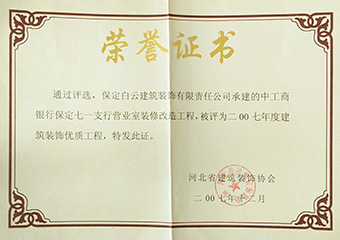 荣誉证书
通过评选，保定白云建筑装饰有限责任公司承建的中工商
银行保定七一支行营业室装修改造工程，被评为二00七年度建
筑装饰优质工程，特发此证。
河北省建筑装饰协会
二00七年十二月